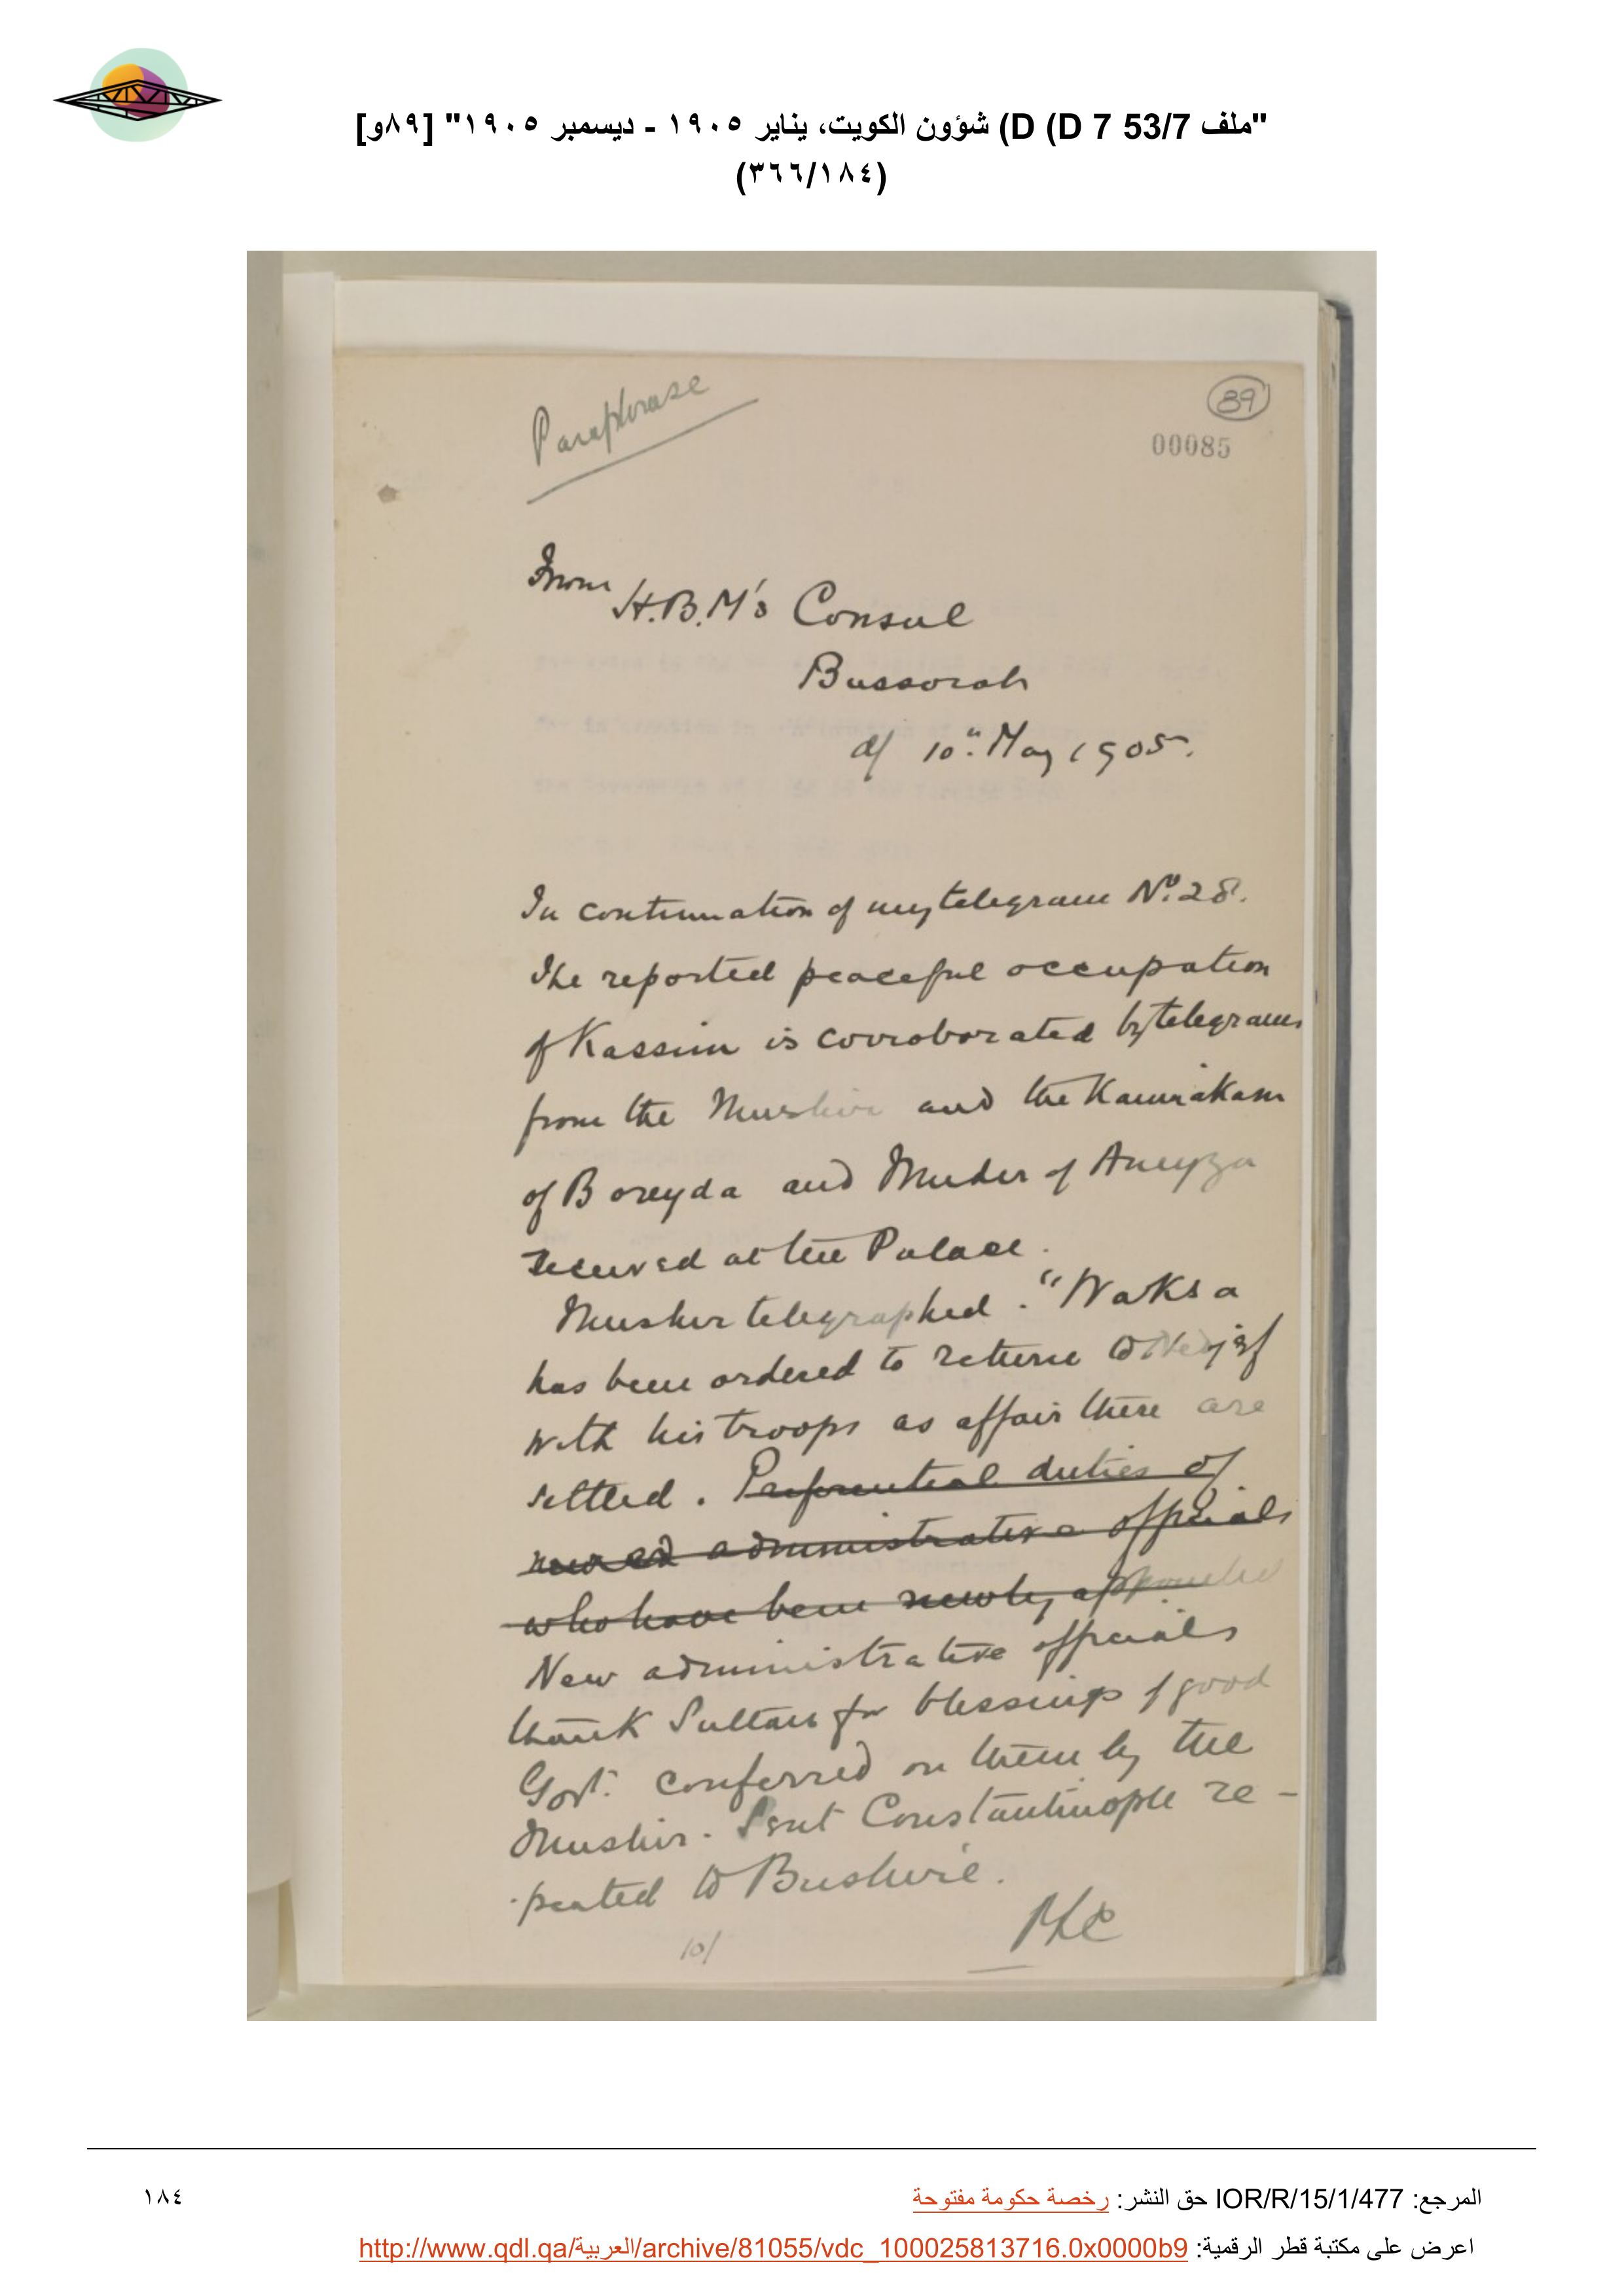 "ملف 53/7 D (D 7) شؤون الكويت، يناير ١٩٠٥ - ديسمبر ١٩٠٥" [٨٩و]
(٣٦٦/١٨٤)
Paraphrase
89
00085
From
H.B.M's Consul
Bussorah
d/ 10th May 1905.
In continuation of my telegram No. 28.
The reported peaceful occupation
of Kassim is corroborated by telegrams
from the Mushir and the Kaimakam
of Boreyda and Mudir of Aneyza
received at the Palace.
Mushir telegraphed. "
has been ordered to return to Nejef
with his troops as affair there are
settled. Preferential duties of
administrative officials
who have been newly appointed
New administrative officials
thank Sultan for blessings of good
Govt. conferred on them by the
Mushir. Sent Constantinople re-
peated to Bushire.
10/
المرجع: IOR/R/15/1/477 حق النشر: رخصة حكومة مفتوحة
١٨٤
اعرض على مكتبة قطر الرقمية: http://www.qdl.qa/العربية/archive/81055/vdc_100025813716.0x0000b9